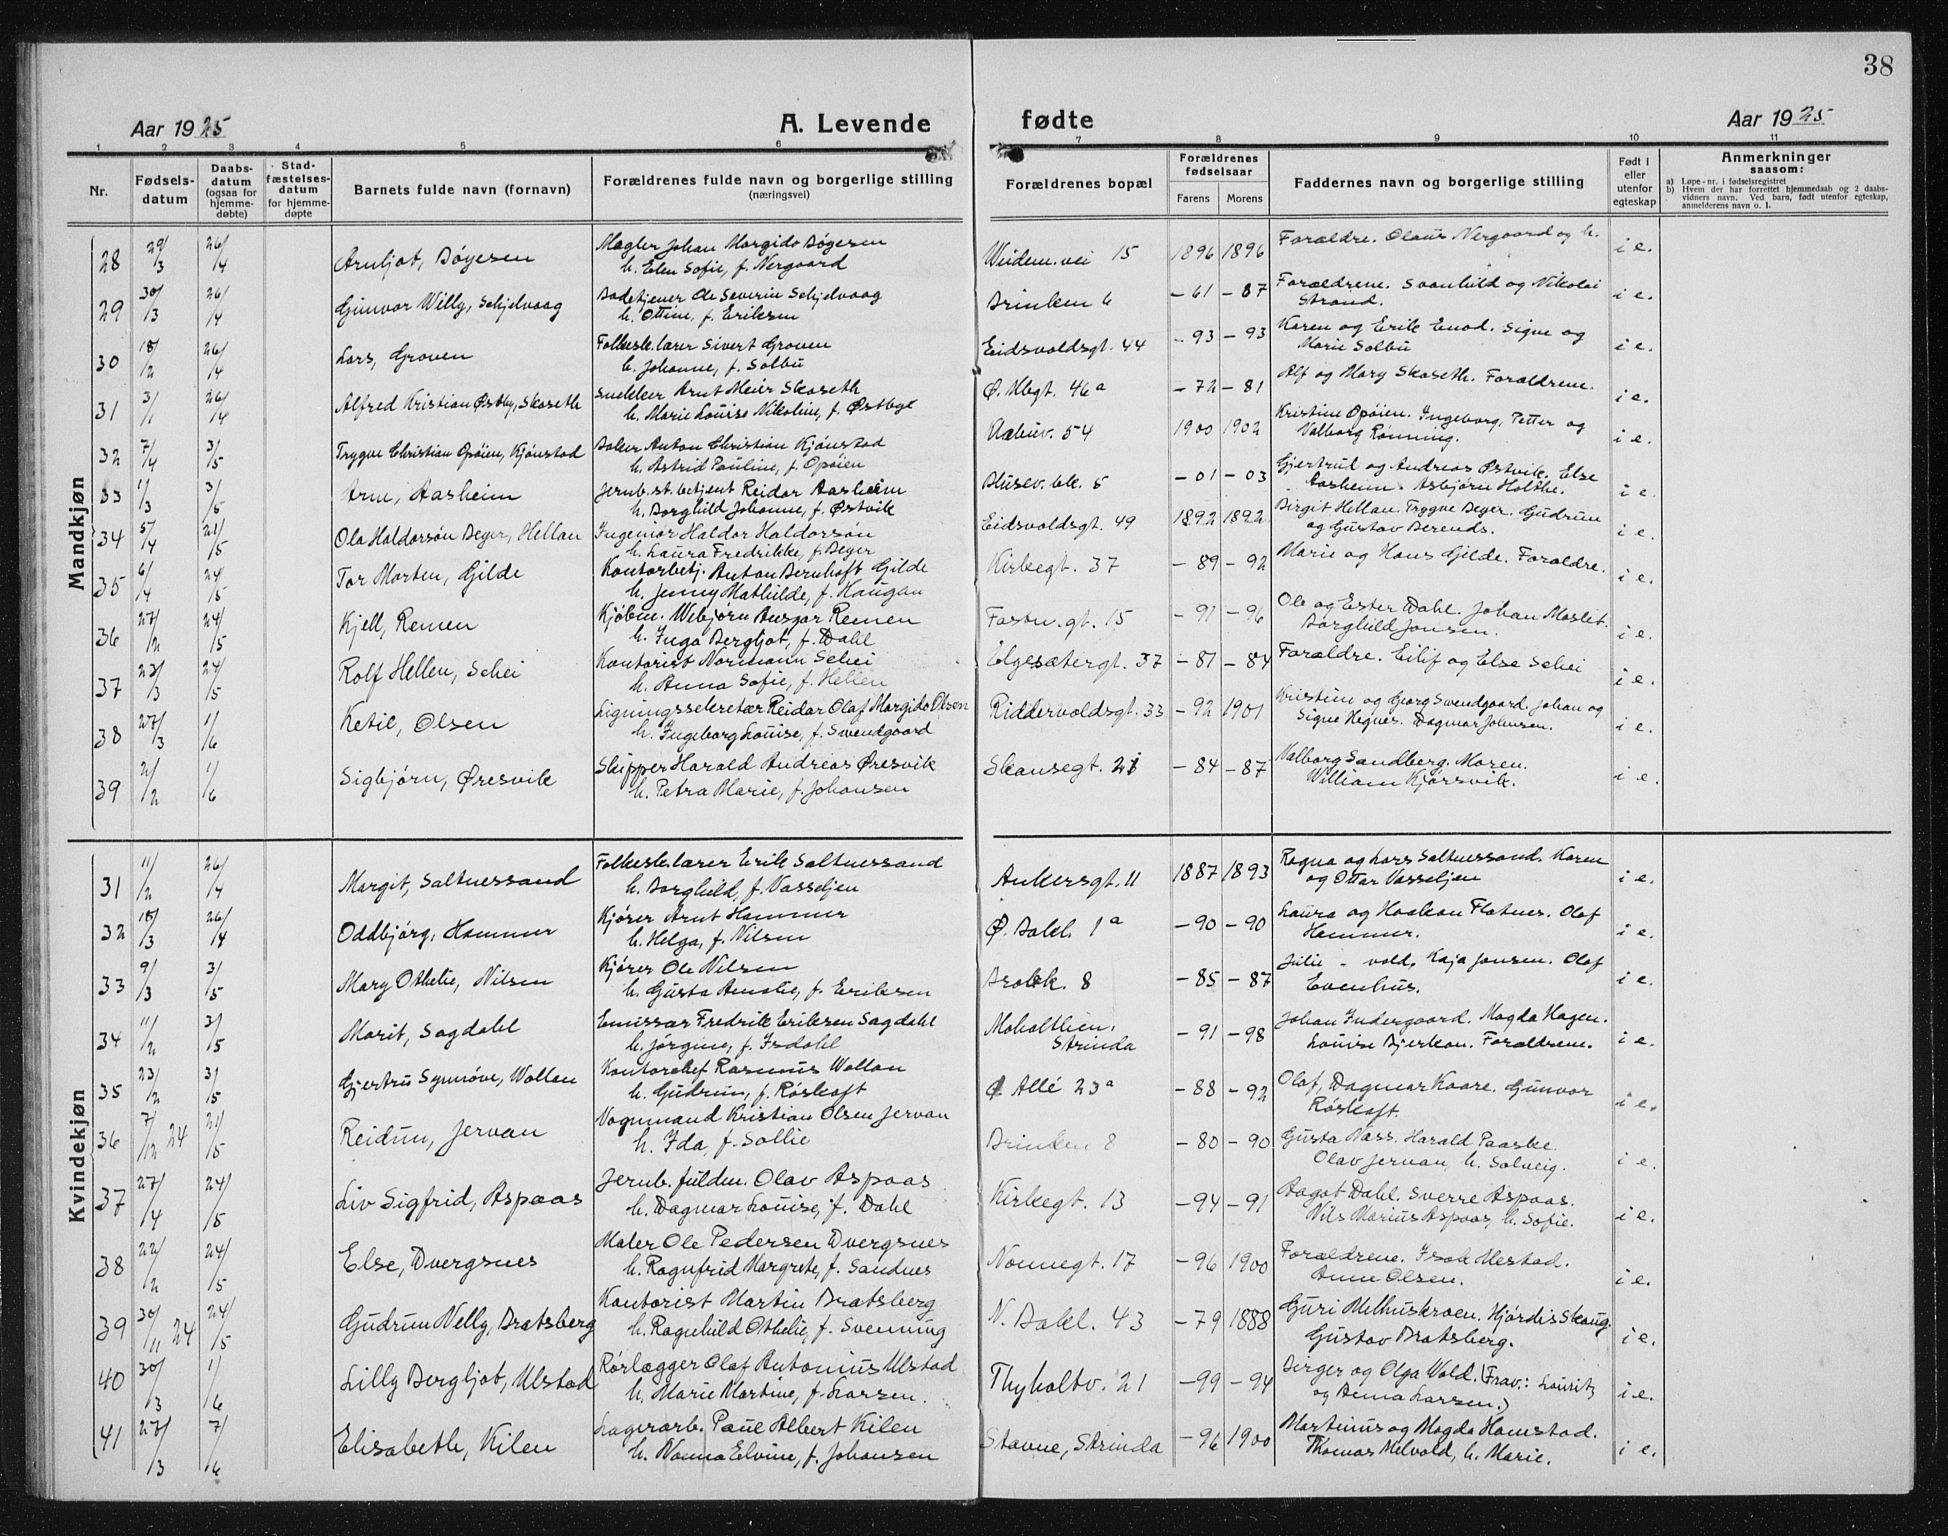 38
Aar 1925 A. Levende fødte Aar 1925
1 2 3 4 5 6 7 8 9 10 11
Nr. Fødsels-datum Daabs-datum (ogsaa for hjemme-døbte) Stad-fæstelses-datum for hjemme-døpte Barnets fulde navn (fornavn) Forældrenes fulde navn og borgerlige stilling (næringsvei) Forældrenes bopæl Forældrenes fødselsaar Farens Morens Faddernes navn og borgerlige stilling Født i eller utenfor egteskap Anmerkninger saasom:
a) Løpe-nr. i fødselsregistret
b) Hvem der har forrettet hjemmedaab og 2 daabs-vidners navn. Ved barn, født utenfor egteskap, anmelderens navn o. l.
Mandkjøn
28 29/3 26/4 Arnljot, Bøyesen Mægler Johan Margido Bøyesen Weidem.vei 15 1896 1896 Forældre. Olaus Nergaard og h. i e.
h. Elen Sofie, f. Nergaard
29 30/3 26/4 Gunvor Willy, Schjelvaag Badetjener Ole Severin Schjelvaag Brinken 6 -61 -87 Forældrene. Svanhild og Nikolai i e.
h. Ottine, f. Eriksen Strand.
30 18/2 26/4 Lars, Groven Folkesk.lærer Sivert Groven Eidsvoldsgt. 44 -93 -93 Karen og Erik Enod. Signe og i e.
h. Johanne, f. Solbu Marie Solbu
31 3/1 26/4 Alfred Kristian Østby, Skaseth Snekker Arnt Meier Skaseth Ø. Mbgt. 46a -72 -81 Alf og Mary Skaseth. Forældrene. i e.
h. Marie Louise Nikoline, f. Østbye
32 7/4 3/5 Trygve Christian Opøien, Kjønstad Baker Anton Christian Kjønstad Aabuv. 54 1900 1902 Kristine Opøien. Ingeborg, Petter og i e.
h. Astrid Pauline, f. Opøien Valborg Rønning.
33 1/3 3/5 Arne, Aasheim Jernb.st.betjent Reidar Aasheim Blusev. bk. 5 -01 -03 Gjertrud og Andreas Østvik. Else i e.
h. Borghild Johanne, f. Østvik Aasheim. Asbjørn Holthe.
34 5/4 21/5 Ola Haldorsøn Beyer, Hellan Ingeniør Haldor Haldorsøn Eidsvoldsgt. 49 1892 1892 Birgit Hellan. Trygve Beyer. Gudrun i e.
h. Laura Fredrikke, f. Beyer og Gustav Berends.
35 6/4 24/5 Tor Morten, Gilde Kontorbetj. Anton Bernhoft Gilde Kirkegt. 37 -89 -92 Marie og Hans Gilde. Forældre. i e.
h. Jenny Mathilde, f. Haugan
36 27/2 24/5 Kjell, Remen Kjøbm. Webjørn Ansgar Remen Fastn.gt. 15 -91 -96 Ole og Ester Dahl. Johan Moslet. i e.
h. Inga Bergljot, f. Dahl Borghild Jonsen.
37 23/3 24/5 Rolf Hellen, Schei Kontorist Normann Schei Elgesætergt. 37 -81 -84 Forældre. Eilif og Else Schei i e.
h. Anna Sofie, f. Hellen
38 27/3 1/6 Ketil, Olsen Ligningssekretær Reidar Olaf Margido Olsen Riddervoldsgt. 33 -92 1901 Kristine og Georg Svendgaard. Johan og i e.
h. Ingeborg Louise, f. Svendgaard Signe Hegnes. Dagmar Johnsen.
39 2/2 1/6 Sigbjørn, Øresvik Skipper Harald Andreas Øresvik Skansegt. 21 -84 -87 Valborg Sandberg. Moren. i e.
h. Petra Marie, f. Johansen William Kjørsvik.
Kvindekjøn
31 11/2 26/4 Margit, Saltnessand Folkesk.lærer Erik Saltnessand Ankersgt. 11 1887 1893 Ragna og Lars Saltnessand. Karen i e.
h. Borghild, f. Vasseljen og Ottar Vasseljen
32 18/3 26/4 Oddbjørg, Hammer Kjører Arnt Hammer Ø. Bakl. 1a -90 -90 Laura og Haakon Flatnes. Olaf i e.
h. Helga, f. Nilsen Hammer.
33 9/3 3/5 Mary Othelie, Nilsen Kjører Ole Nilsen 8 -85 -87 Julie - vold, Kaja Jonsen. Olaf i e.
h. Gusta Amalie, f. Eriksen Evenhus.
34 11/2 3/5 Marit, Sagdahl Emissær Fredrik Eriksen Sagdahl Moholtlien, -91 -98 Johan Indergaard. Magda Hagen. i e.
h. Jørgine, f. Isdahl Strinda Louise Bjerkan. Forældrene.
35 23/2 3/5 Gjertru Synnøve, Wollan Kontorchef Rasmus Wollan Ø Allé 23a -88 -92 Olaf, Dagmar Kaare. Gunvor i e.
h. Gudrun, f. Røskaft Røskaft.
36 7/12 24 21/5 Reidun, Jervan Vognmand Kristian Olsen Jervan Brinken 8 -80 -90 Gusta Næss. Harald Paaske. i e.
h. Ida, f. Sollie Olav Jervan, h. Solveig.
37 27/4 24/5 Liv Sigfrid, Aspaas Jernb.fuldm. Olav Aspaas Kirkegt. 13 -94 -91 Aagot Dahl. Sverre Aspaas. i e.
h. Dagmar Louise, f. Dahl Nils Marius Aspaas, h. Sofie.
38 22/2 24/5 Else, Dvergsnes Maler Ole Pedersen Dvergsnes Nonnegt. 17 -96 1900 Forældrene. Isak Mestad. i e.
h. Ragnfrid Margrete, f. Sandnes Anne Olsen.
39 30/11 24 24/5 Gudrun Nelly, Bratsberg Kontorist Martin Bratsberg N. Bakl. 43 -79 1888 Guri Melhuskroen. Hjørdis Skaug. i e.
h. Ragnhild Othelie, f. Svenning Gustav Bratsberg.
40 30/3 1/6 Lilly Bergljot, Ulstad Rørlægger Olaf Antonius Ulstad Thyholtv. 21 -99 -94 Birger og Olga Wold. (Frav.: Lourits i e.
h. Marie Martine, f. Larsen. og Anna Larsen.)
41 27/3 7/6 Elisabeth, Kilen Lagerarb. Paul Albert Kilen Stavne, Strinda -96 1900 Martinus og Magda Hamstad. i e.
h. Nanna Elvine, f. Johansen Thomas Melvold, h. Marie.